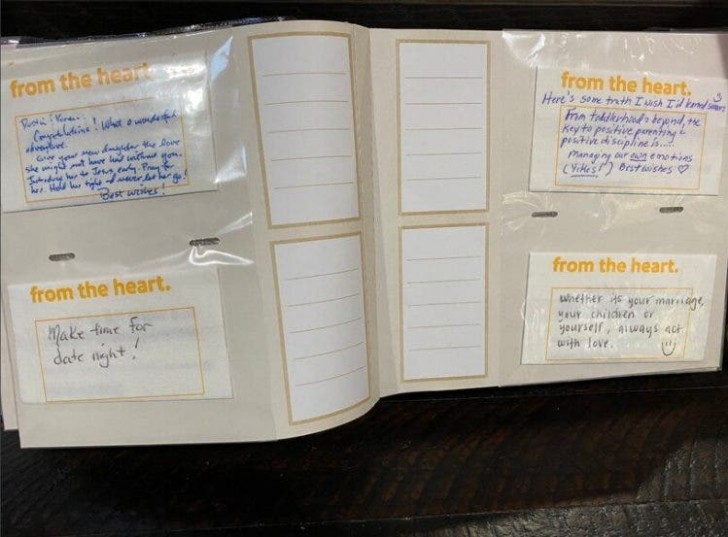 from the heart
Congratulations! What a wonderful
adventure.
Give your new daughter the love
she might not have had without you.
her to Jesus, early. Pray for
her. Hold her tight and never let her go!
Best wishes!
from the heart.
Make time for
date night!
from the heart.
Here's some truth I wish I'd learned sooner
From toddlerhood & beyond, the
key to positive parenting &
positive discipline is....
managing our own emotions
(Yikes!) Best wishes ♡
from the heart.
whether its your marriage,
your children or
yourself, always act
with love.